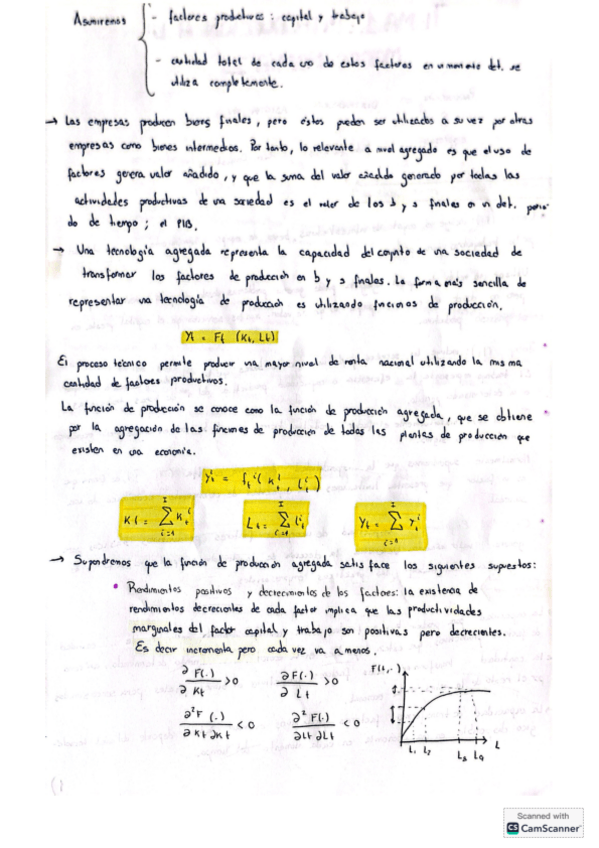 Asumiremos - factores productivos: capital y trabajo
- cantidad total de cada uno de estos factores en un momento det. se
utiliza completamente.
→ Las empresas producen bienes finales, pero éstos pueden ser utilizados a su vez por otras
empresas como bienes intermedios. Por tanto, lo relevante a nivel agregado es que el uso de
factores genera valor añadido, y que la suma del valor añadido generado por todas las
actividades productivas de una sociedad es el valor de los b y s finales en un det. perio
do de tiempo; el PIB.
→ Una tecnología agregada representa la capacidad del conjunto de una sociedad de
transformar los factores de producción en b y s finales. La forma más sencilla de
representar una tecnología de producción es utilizando funciones de producción.
Yt = Ft (Kt, Lt)
El proceso técnico permite producir una mayor nivel de renta nacional utilizando la misma
cantidad de factores productivos.
La función de producción se conoce como la función de producción agregada, que se obtiene
por la agregación de las funciones de producción de todas las plantas de producción que
existen en una economía.
Y_t^i = f_t^i (K_t^i, L_t^i)
Kt = Σ_{i=1}^{I} K_t^i Lt = Σ_{i=1}^{I} L_t^i Yt = Σ_{i=1}^{I} Y_t^i
→ Supondremos que la función de producción agregada satisface los siguientes supuestos:
• Rendimientos positivos y decrecimientos de los factores: la existencia de
rendimientos decrecientes de cada factor implica que las productividades
marginales del factor capital y trabajo son positivas pero decrecientes.
Es decir incrementa pero cada vez va a menos.
∂F(·)/∂Kt >0 ∂F(·)/∂Lt >0 F(t,·)
∂²F(·)/∂Kt∂Kt <0 ∂²F(·)/∂Lt∂Lt <0
L1 L2 L3 L4 L
Scanned with
CS CamScanner